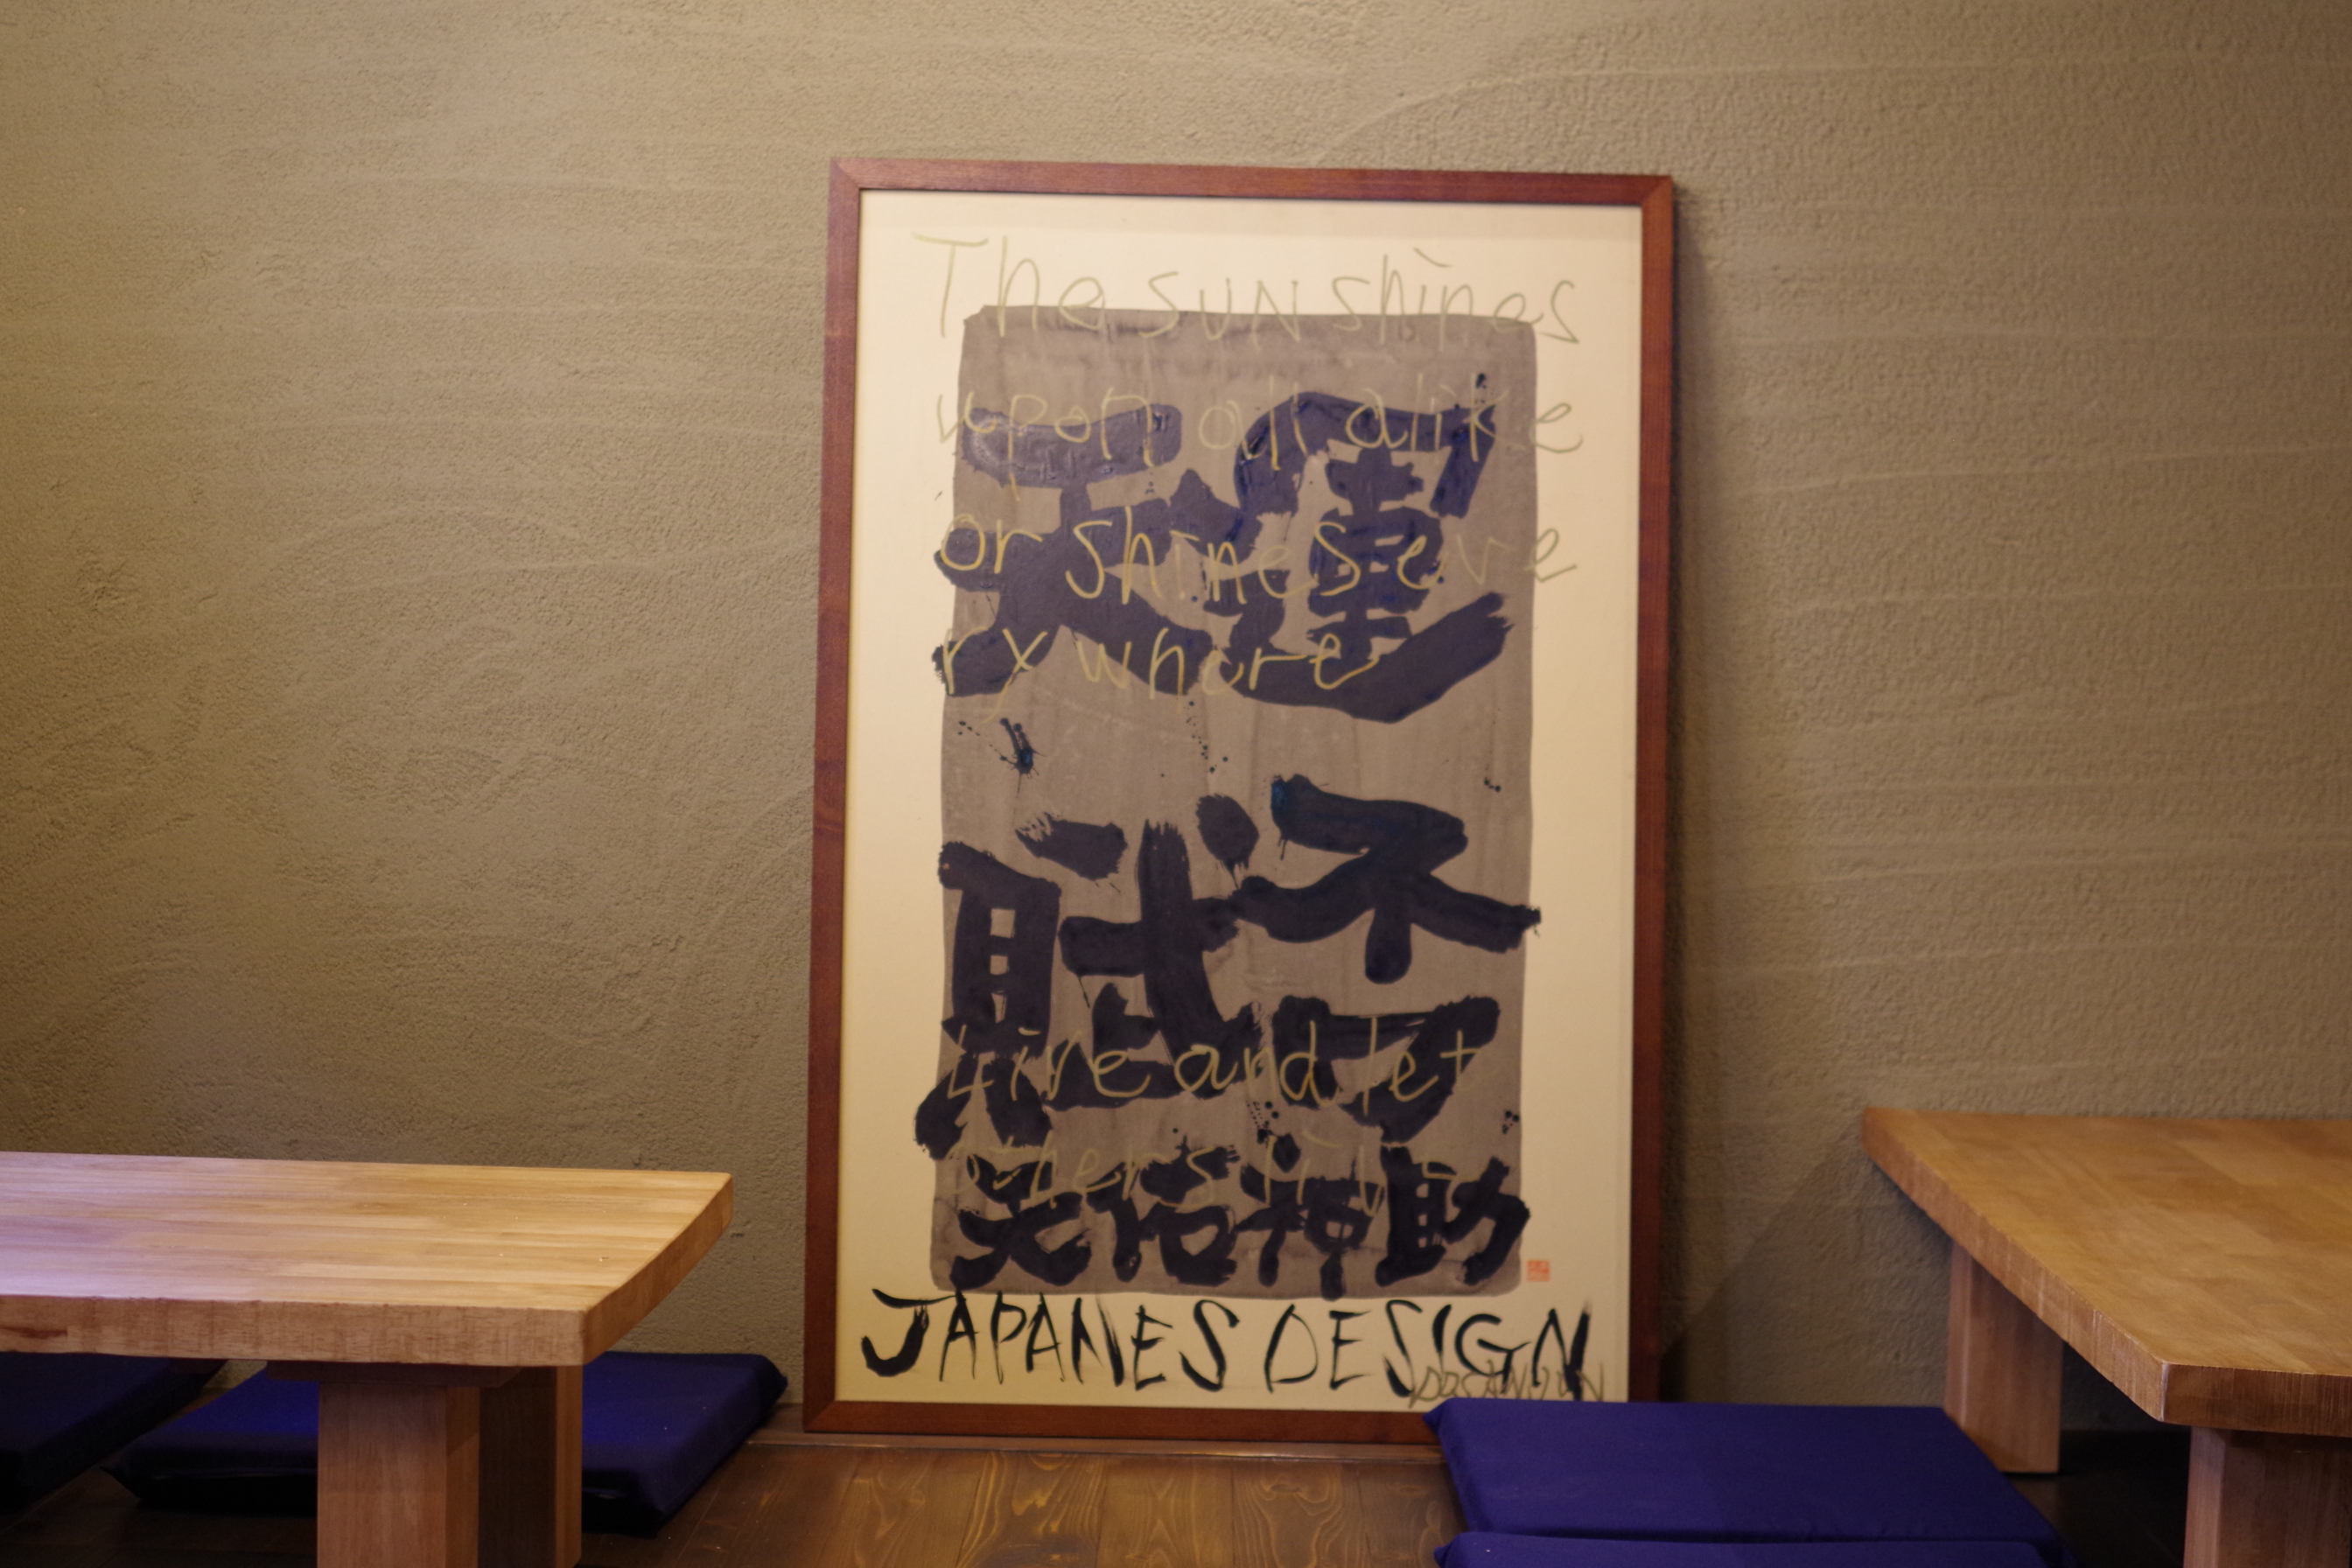 The suN shines
upon all alike
or shines eve
ry where
運否
天賦
Live and let
others live
天佑神助
JAPANES DESIGN